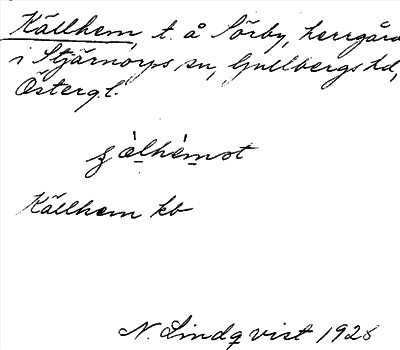 Källhem, t. å Sörby, herrgård
i Stjärnorps sn, Gullbergs hd,
Östergl.
Källhem kb
N. Lindqvist 1928